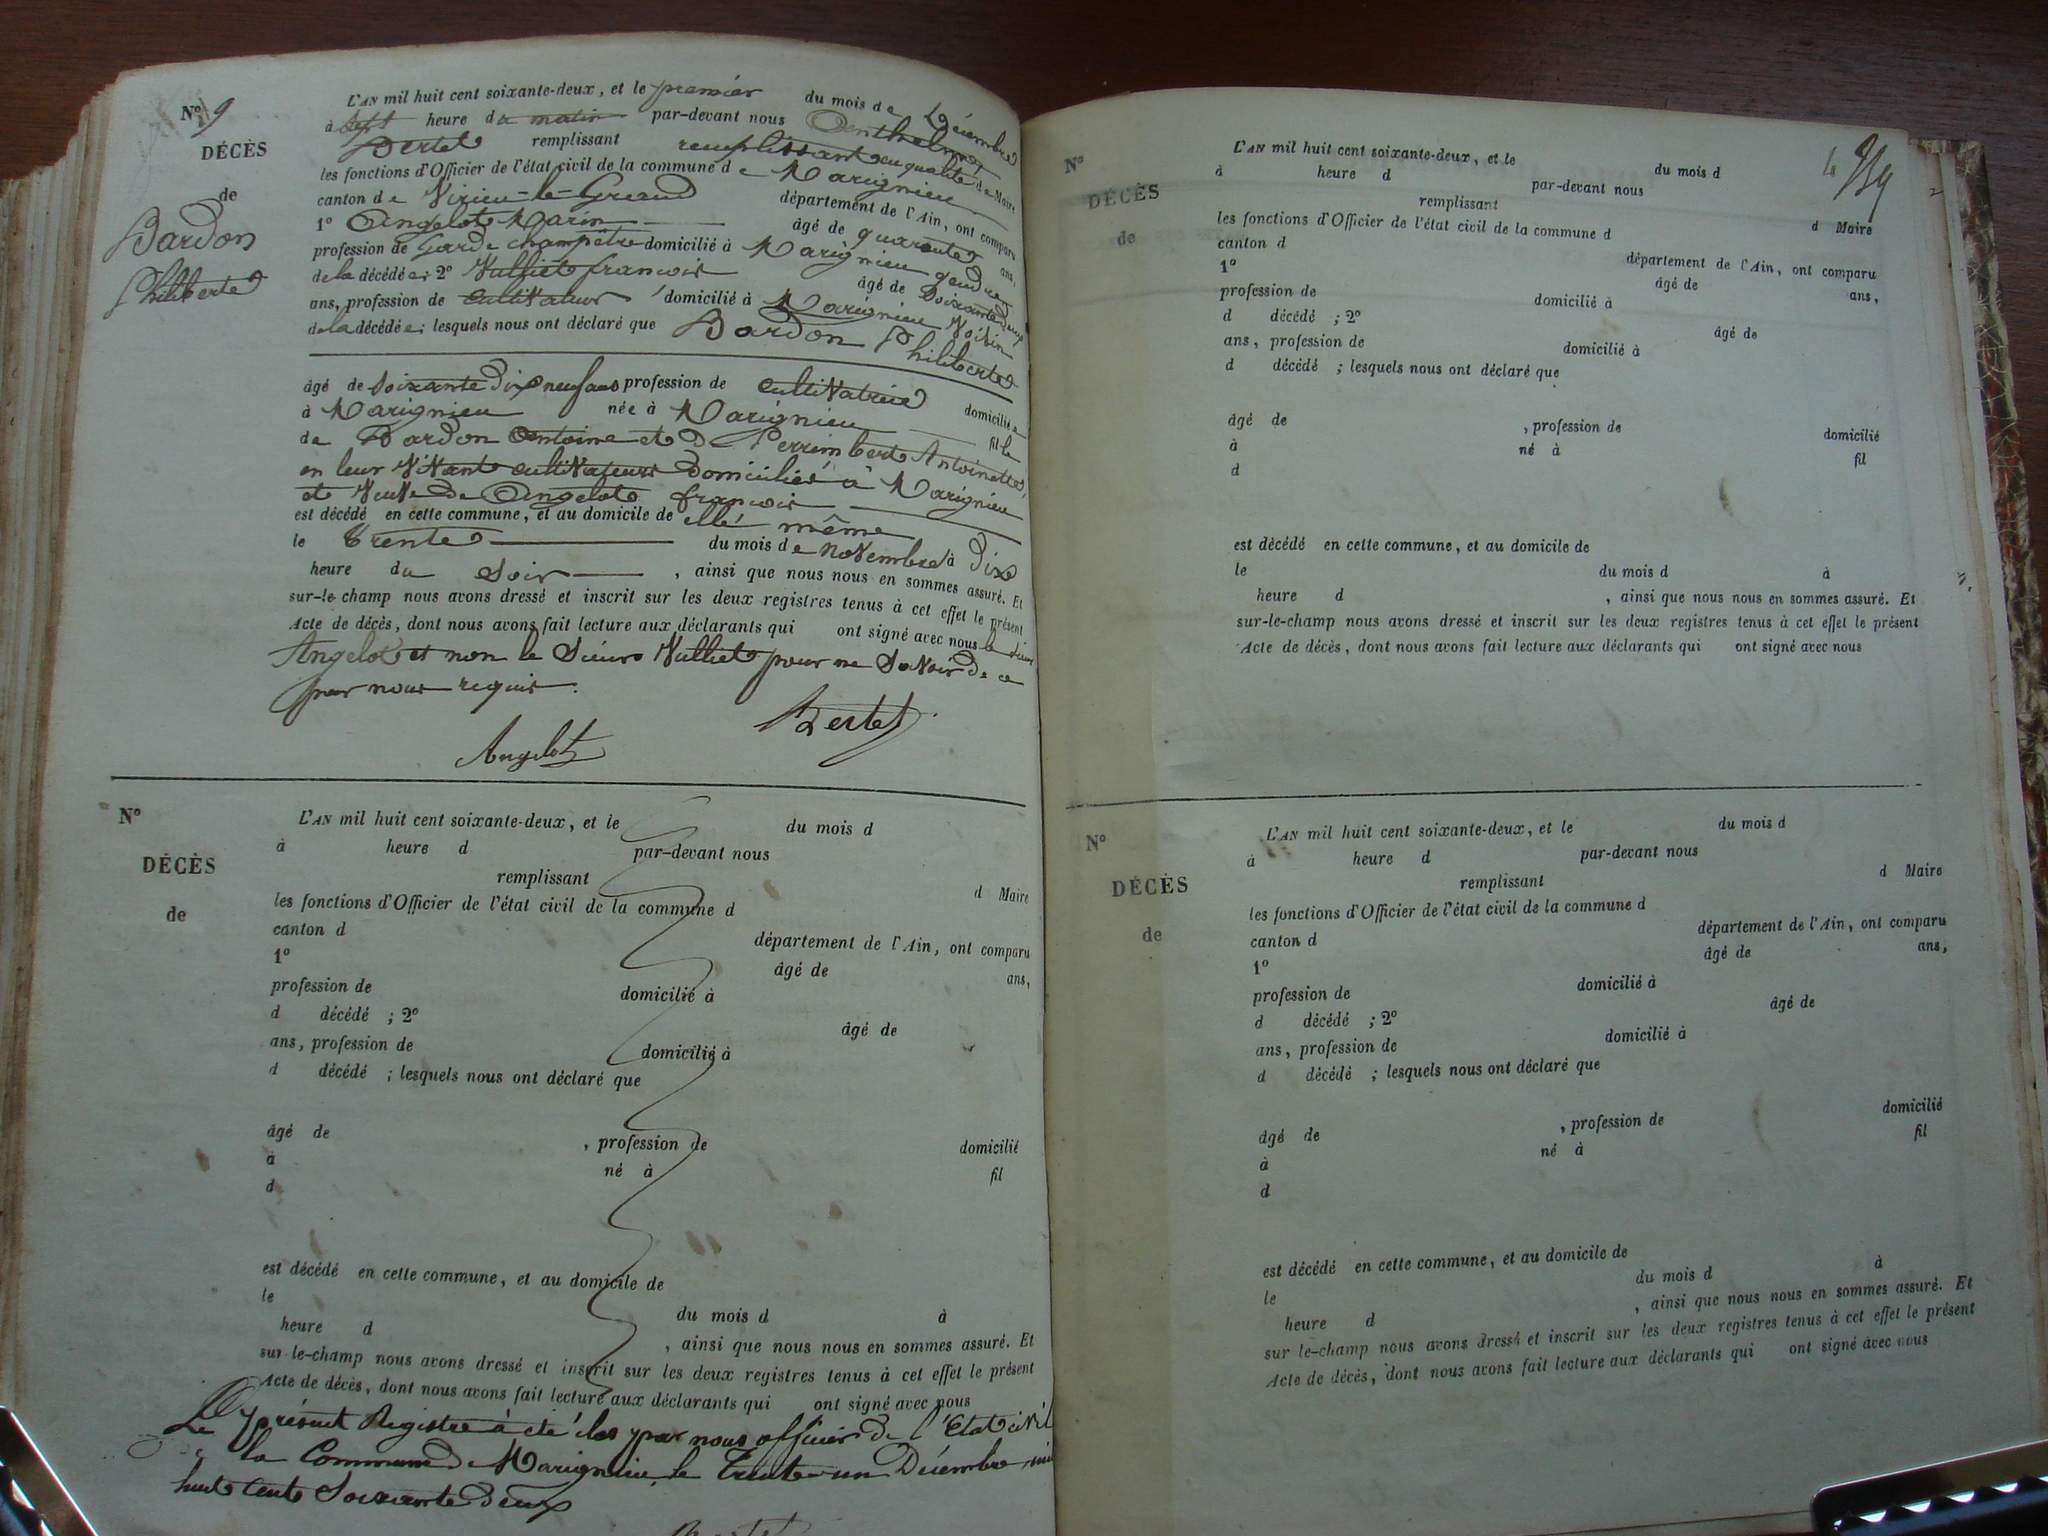 N° 9
DÉCÈS
de
Bardon
Philiberte
L'AN mil huit cent soixante-deux, et le premier du mois de Décembre
à sept heure du matin par-devant nous Anthelme
Bertet remplissant remplissant en qualité de Maire
les fonctions d'Officier de l'état civil de la commune de Marignieu
canton de Virieu-le-Grand département de l'Ain, ont comparu
1° Angelot Marin âgé de quarante ans,
profession de Garde champêtre domicilié à Marignieu gendre
de la décédée; 2° Vulliet francois âgé de Soixante deux
ans, profession de cultivateur domicilié à Marignieu Voisin
de la décédée; lesquels nous ont déclaré que Bardon Philiberte
âgé de soixante Dix neuf ans profession de cultivatrice domiciliée
à Marignieu née à Marignieu fille
de Bardon Antoine et de Perrimbert Antoinette,
en leur Vivant cultivateurs Domiciliés à Marignieu
et Veuve de Angelot francois
est décédé en cette commune, et au domicile de elle même
le trente du mois de novembre à Dix
heure du soir, ainsi que nous nous en sommes assuré. Et
sur-le-champ nous avons dressé et inscrit sur les deux registres tenus à cet effet le présent
Acte de décès, dont nous avons fait lecture aux déclarants qui ont signé avec nous le sieur
Angelot et non le Sieur Vulliet pour ne Savoir de ce
par nous requis.
Angelot Bertet
N°
DÉCÈS
de
L'AN mil huit cent soixante-deux, et le du mois d
à heure d par-devant nous
remplissant d Maire
les fonctions d'Officier de l'état civil de la commune d
canton d département de l'Ain, ont comparu
1° âgé de ans,
profession de domicilié à
d décédé ; 2° âgé de
ans, profession de domicilié à
d décédé ; lesquels nous ont déclaré que
âgé de , profession de domicilié
à né à fil
d
est décédé en cette commune, et au domicile de
le du mois d à
heure d , ainsi que nous nous en sommes assuré. Et
sur-le-champ nous avons dressé et inscrit sur les deux registres tenus à cet effet le présent
Acte de décès, dont nous avons fait lecture aux déclarants qui ont signé avec nous
Le présent Registre à été clos par nous officier de l'Etat civil
de la Commune de Marignieu, le Trente un Décembre mil
huit cent Soixante deux
N°
DÉCÈS
de
L'AN mil huit cent soixante-deux, et le du mois d
à heure d par-devant nous
remplissant d Maire
les fonctions d'Officier de l'état civil de la commune d
canton d département de l'Ain, ont comparu
1° âgé de ans,
profession de domicilié à
d décédé ; 2° âgé de
ans, profession de domicilié à
d décédé ; lesquels nous ont déclaré que
âgé de , profession de domicilié
à né à fil
d
est décédé en cette commune, et au domicile de
le du mois d à
heure d , ainsi que nous nous en sommes assuré. Et
sur-le-champ nous avons dressé et inscrit sur les deux registres tenus à cet effet le présent
Acte de décès, dont nous avons fait lecture aux déclarants qui ont signé avec nous
N°
DÉCÈS
de
L'AN mil huit cent soixante-deux, et le du mois d
à heure d par-devant nous
remplissant d Maire
les fonctions d'Officier de l'état civil de la commune d
canton d département de l'Ain, ont comparu
1° âgé de ans,
profession de domicilié à
d décédé ; 2° âgé de
ans, profession de domicilié à
d décédé ; lesquels nous ont déclaré que
âgé de , profession de domicilié
à né à fil
d
est décédé en cette commune, et au domicile de
le du mois d à
heure d , ainsi que nous nous en sommes assuré. Et
sur-le-champ nous avons dressé et inscrit sur les deux registres tenus à cet effet le présent
Acte de décès, dont nous avons fait lecture aux déclarants qui ont signé avec nous